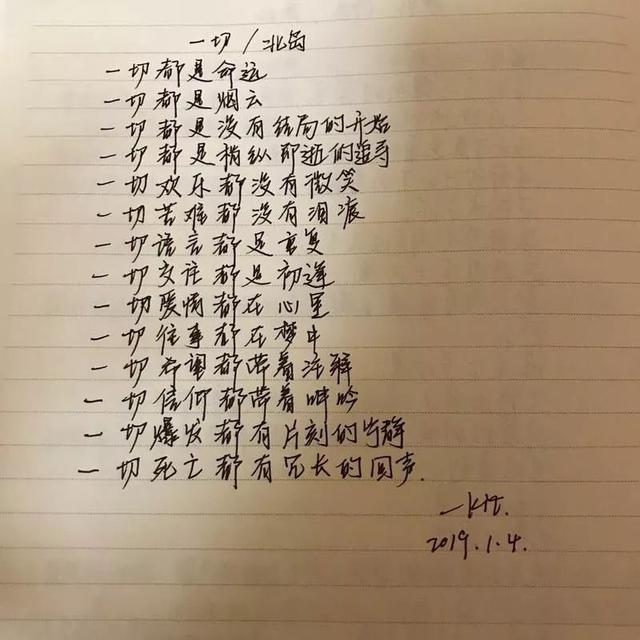 一切/北岛
一切都是命运
一切都是烟云
一切都是没有结局的开始
一切都是稍纵即逝的追寻
一切欢乐都没有微笑
一切苦难都没有泪痕
一切语言都是重复
一切交往都是初逢
一切爱情都在心里
一切往事都在梦中
一切希望都带着注解
一切信仰都带着呻吟
一切爆发都有片刻的宁静
一切死亡都有冗长的回声.
2019.1.4.